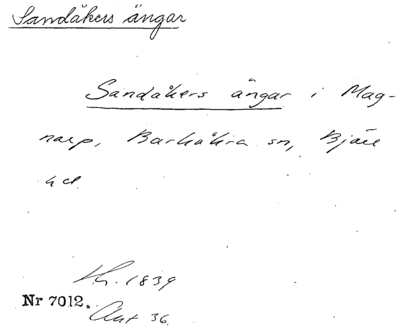 Sandåkers ängar
Sandåkers ängar i Mag-
narp, Barkåkra sn, Bjäre
hd.
Kr. 1839
Nr 7012.
Akt 36.